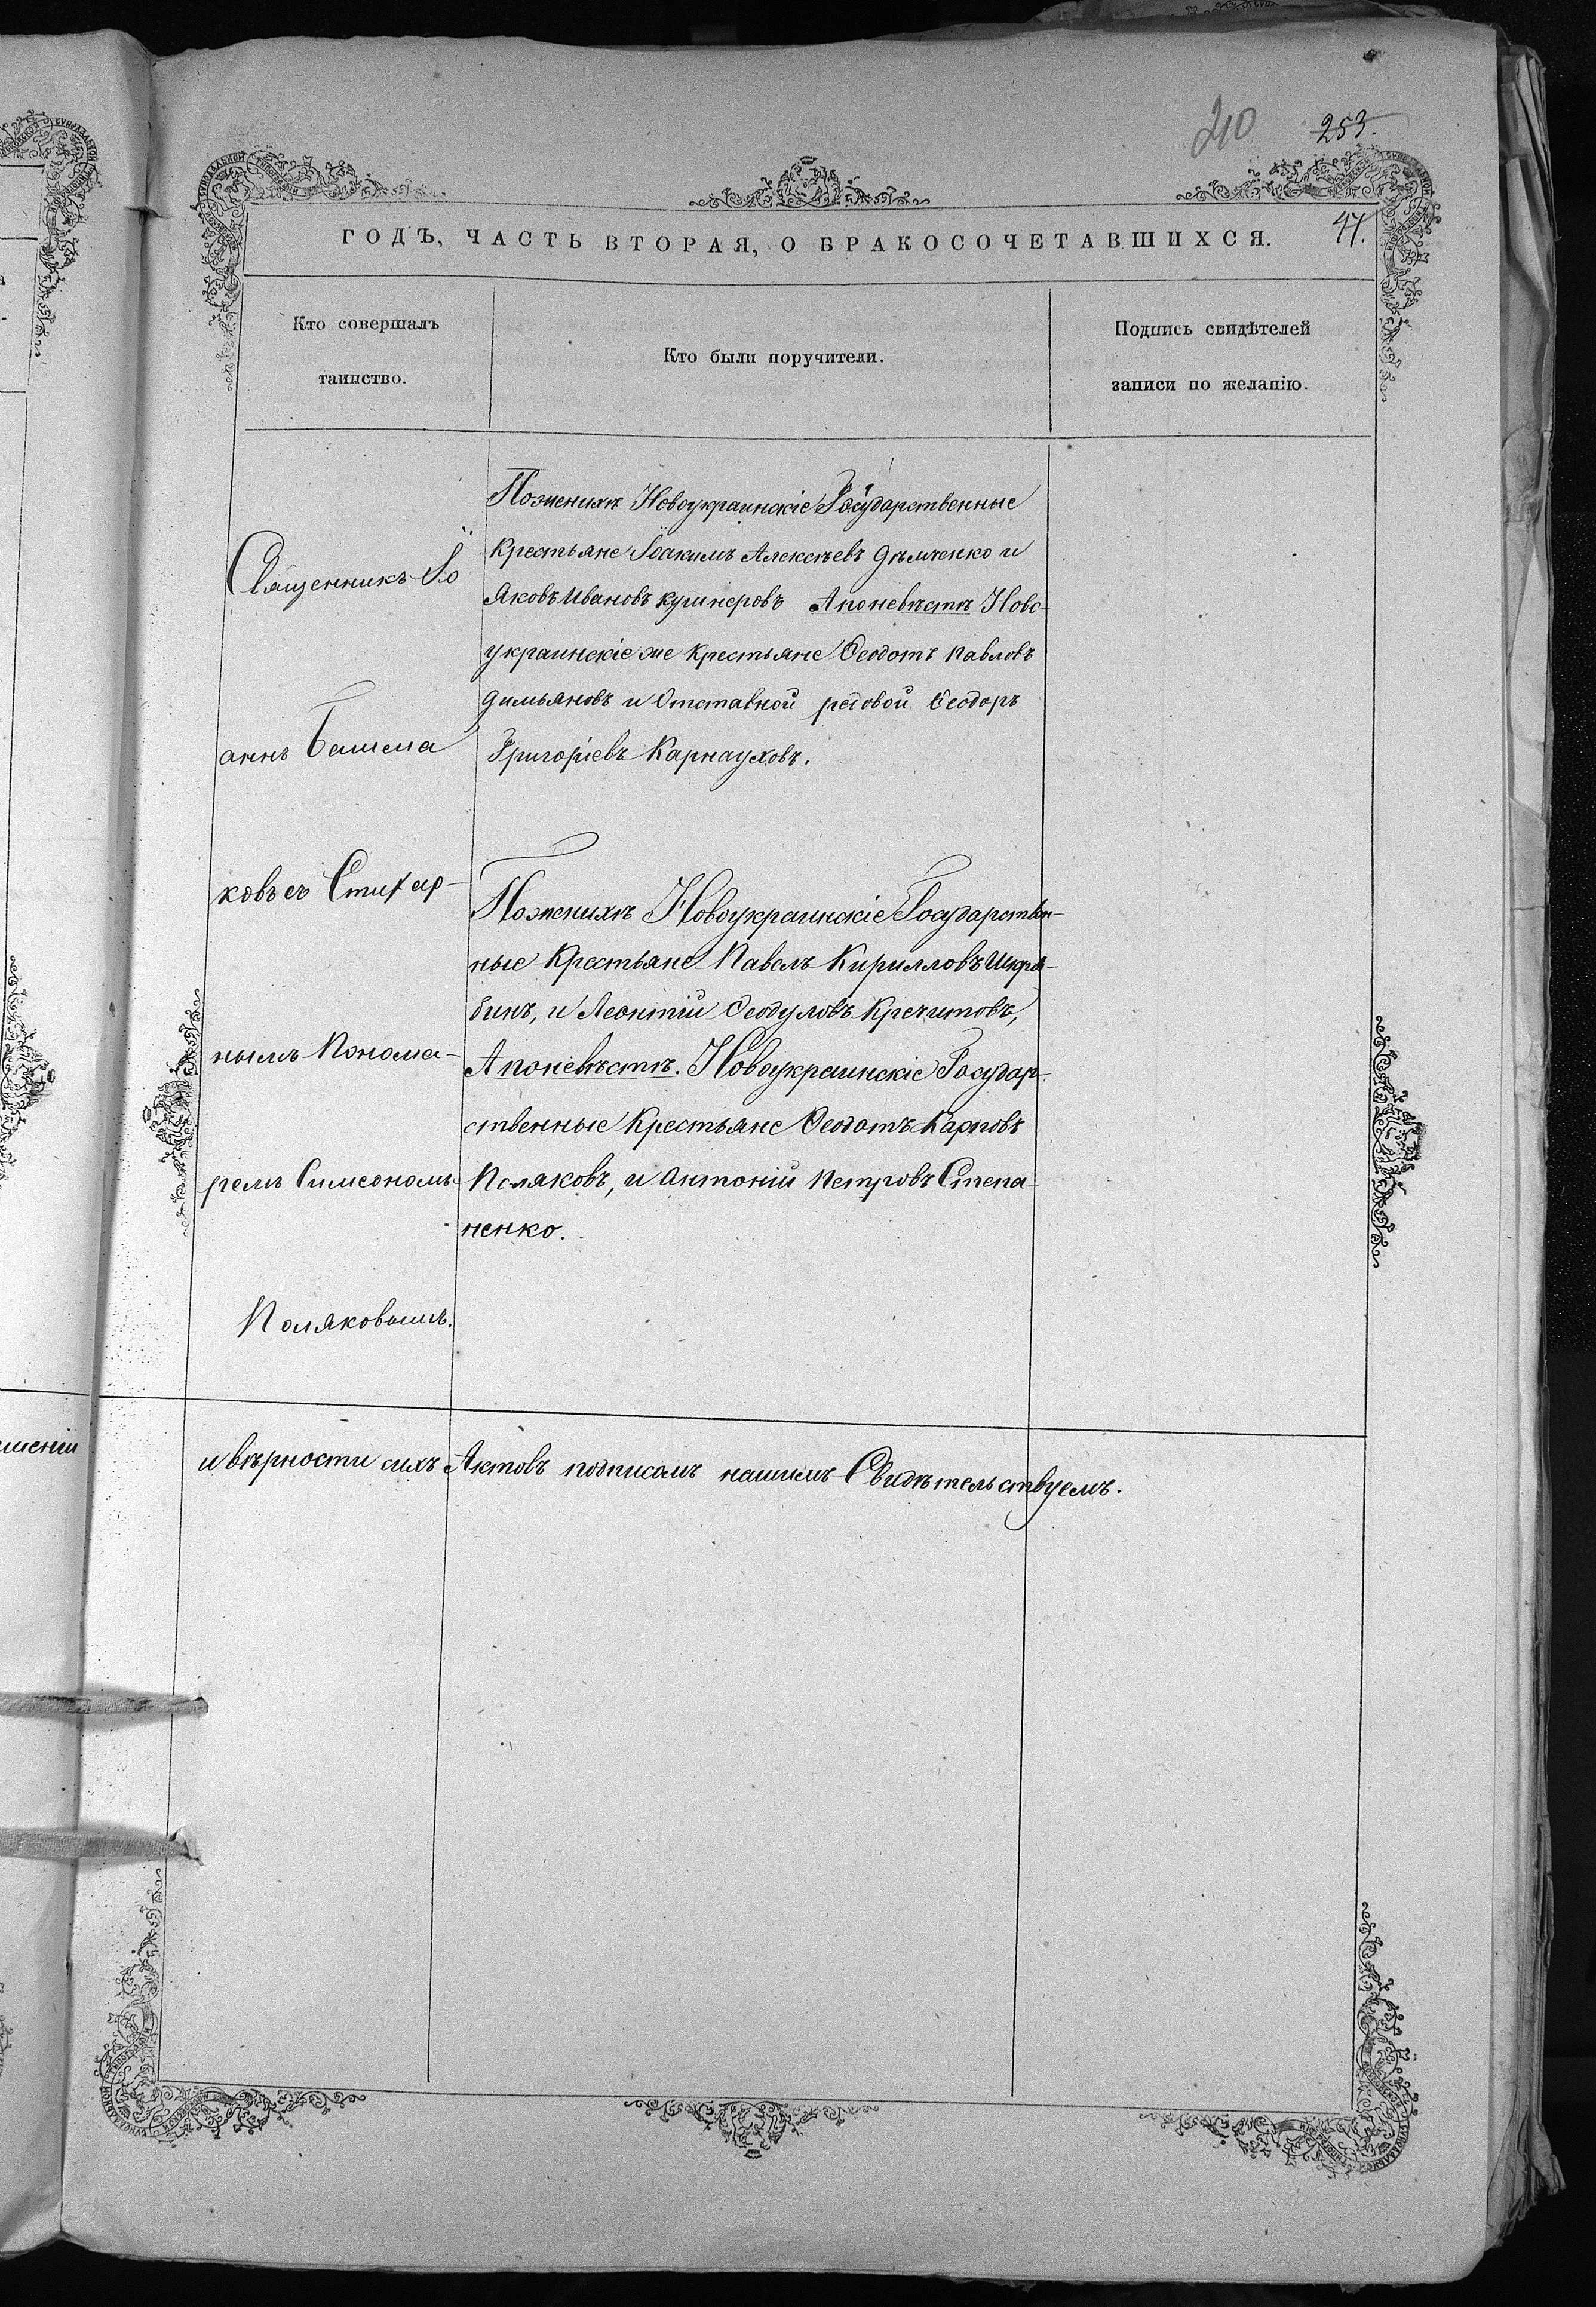 210 253.
ГОДЪ, ЧАСТЬ ВТОРАЯ, О БРАКОСОЧЕТАВШИХСЯ. 47.
Кто совершалъ
таинство.
Кто были поручители.
Подпись свидѣтелей
записи по желанію.
Священникъ Іо
аннъ Башма
ковъ съ Стихар-
нымъ Понома-
ремъ Симеономъ
Поляковымъ.
Поженихѣ Новоукраинскіе Государственные
Крестьяне Іоакимъ Алексѣевъ Дѣмченко и
Яковъ Ивановъ Кушнеровъ Апоневѣстѣ Ново-
украинскіе же Крестьяне Ѳеодотъ Павловъ
Димьяновъ и Отставной рядовой Ѳеодоръ
Григоріевъ Карнауховъ.
Поженихѣ Новоукраинскіе Государствен-
ные Крестьяне Павелъ Кирилловъ Шкря-
бинъ, и Леонтій Ѳеодуловъ Кречитовъ,
Апоневѣстѣ. Новоукраинскіе Государ-
ственные Крестьяне Ѳеодотъ Карповъ
Поляковъ, и Антоній Петровъ Степа-
ненко.
и вѣрности сихъ Актовъ подписомъ нашимъ Свидѣтельствуемъ.